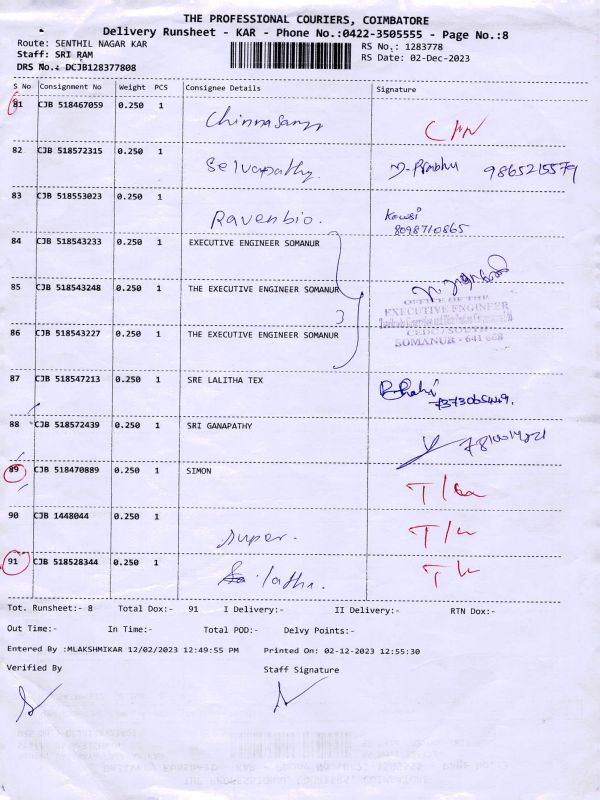 THE PROFESSIONAL COURIERS, COIMBATORE
Delivery Runsheet - KAR - Phone No.:0422-3505555 - Page No.:8
Route: SENTHIL NAGAR KAR
RS No.: 1283778
Staff: SRI RAM
RS Date: 02-Dec-2023
DRS No.: DCJB128377808
S No Consignment No Weight PCS Consignee Details Signature
81 CJB 518467059 0.250 1
82 CJB 518572315 0.250 1 Selvapathy 9865215579
83 CJB 518553023 0.250 1 Ravenbio. Kowsi
8098710865
84 CJB 518543233 0.250 1 EXECUTIVE ENGINEER SOMANUR
85 CJB 518543248 0.250 1 THE EXECUTIVE ENGINEER SOMANUR
3
OFFICE OF THE
EXECUTIVE ENGINEER
SOMANUR - 641 668
86 CJB 518543227 0.250 1 THE EXECUTIVE ENGINEER SOMANUR
87 CJB 518547213 0.250 1 SRE LALITHA TEX
88 CJB 518572439 0.250 1 SRI GANAPATHY
89 CJB 518470889 0.250 1 SIMON
90 CJB 1448044 0.250 1 super.
91 CJB 518528344 0.250 1
Tot. Runsheet:- 8 Total Dox:- 91 I Delivery:- II Delivery:- RTN Dox:-
Out Time:- In Time:- Total POD:- Delvy Points:-
Entered By :MLAKSHMIKAR 12/02/2023 12:49:55 PM Printed On: 02-12-2023 12:55:30
Verified By Staff Signature